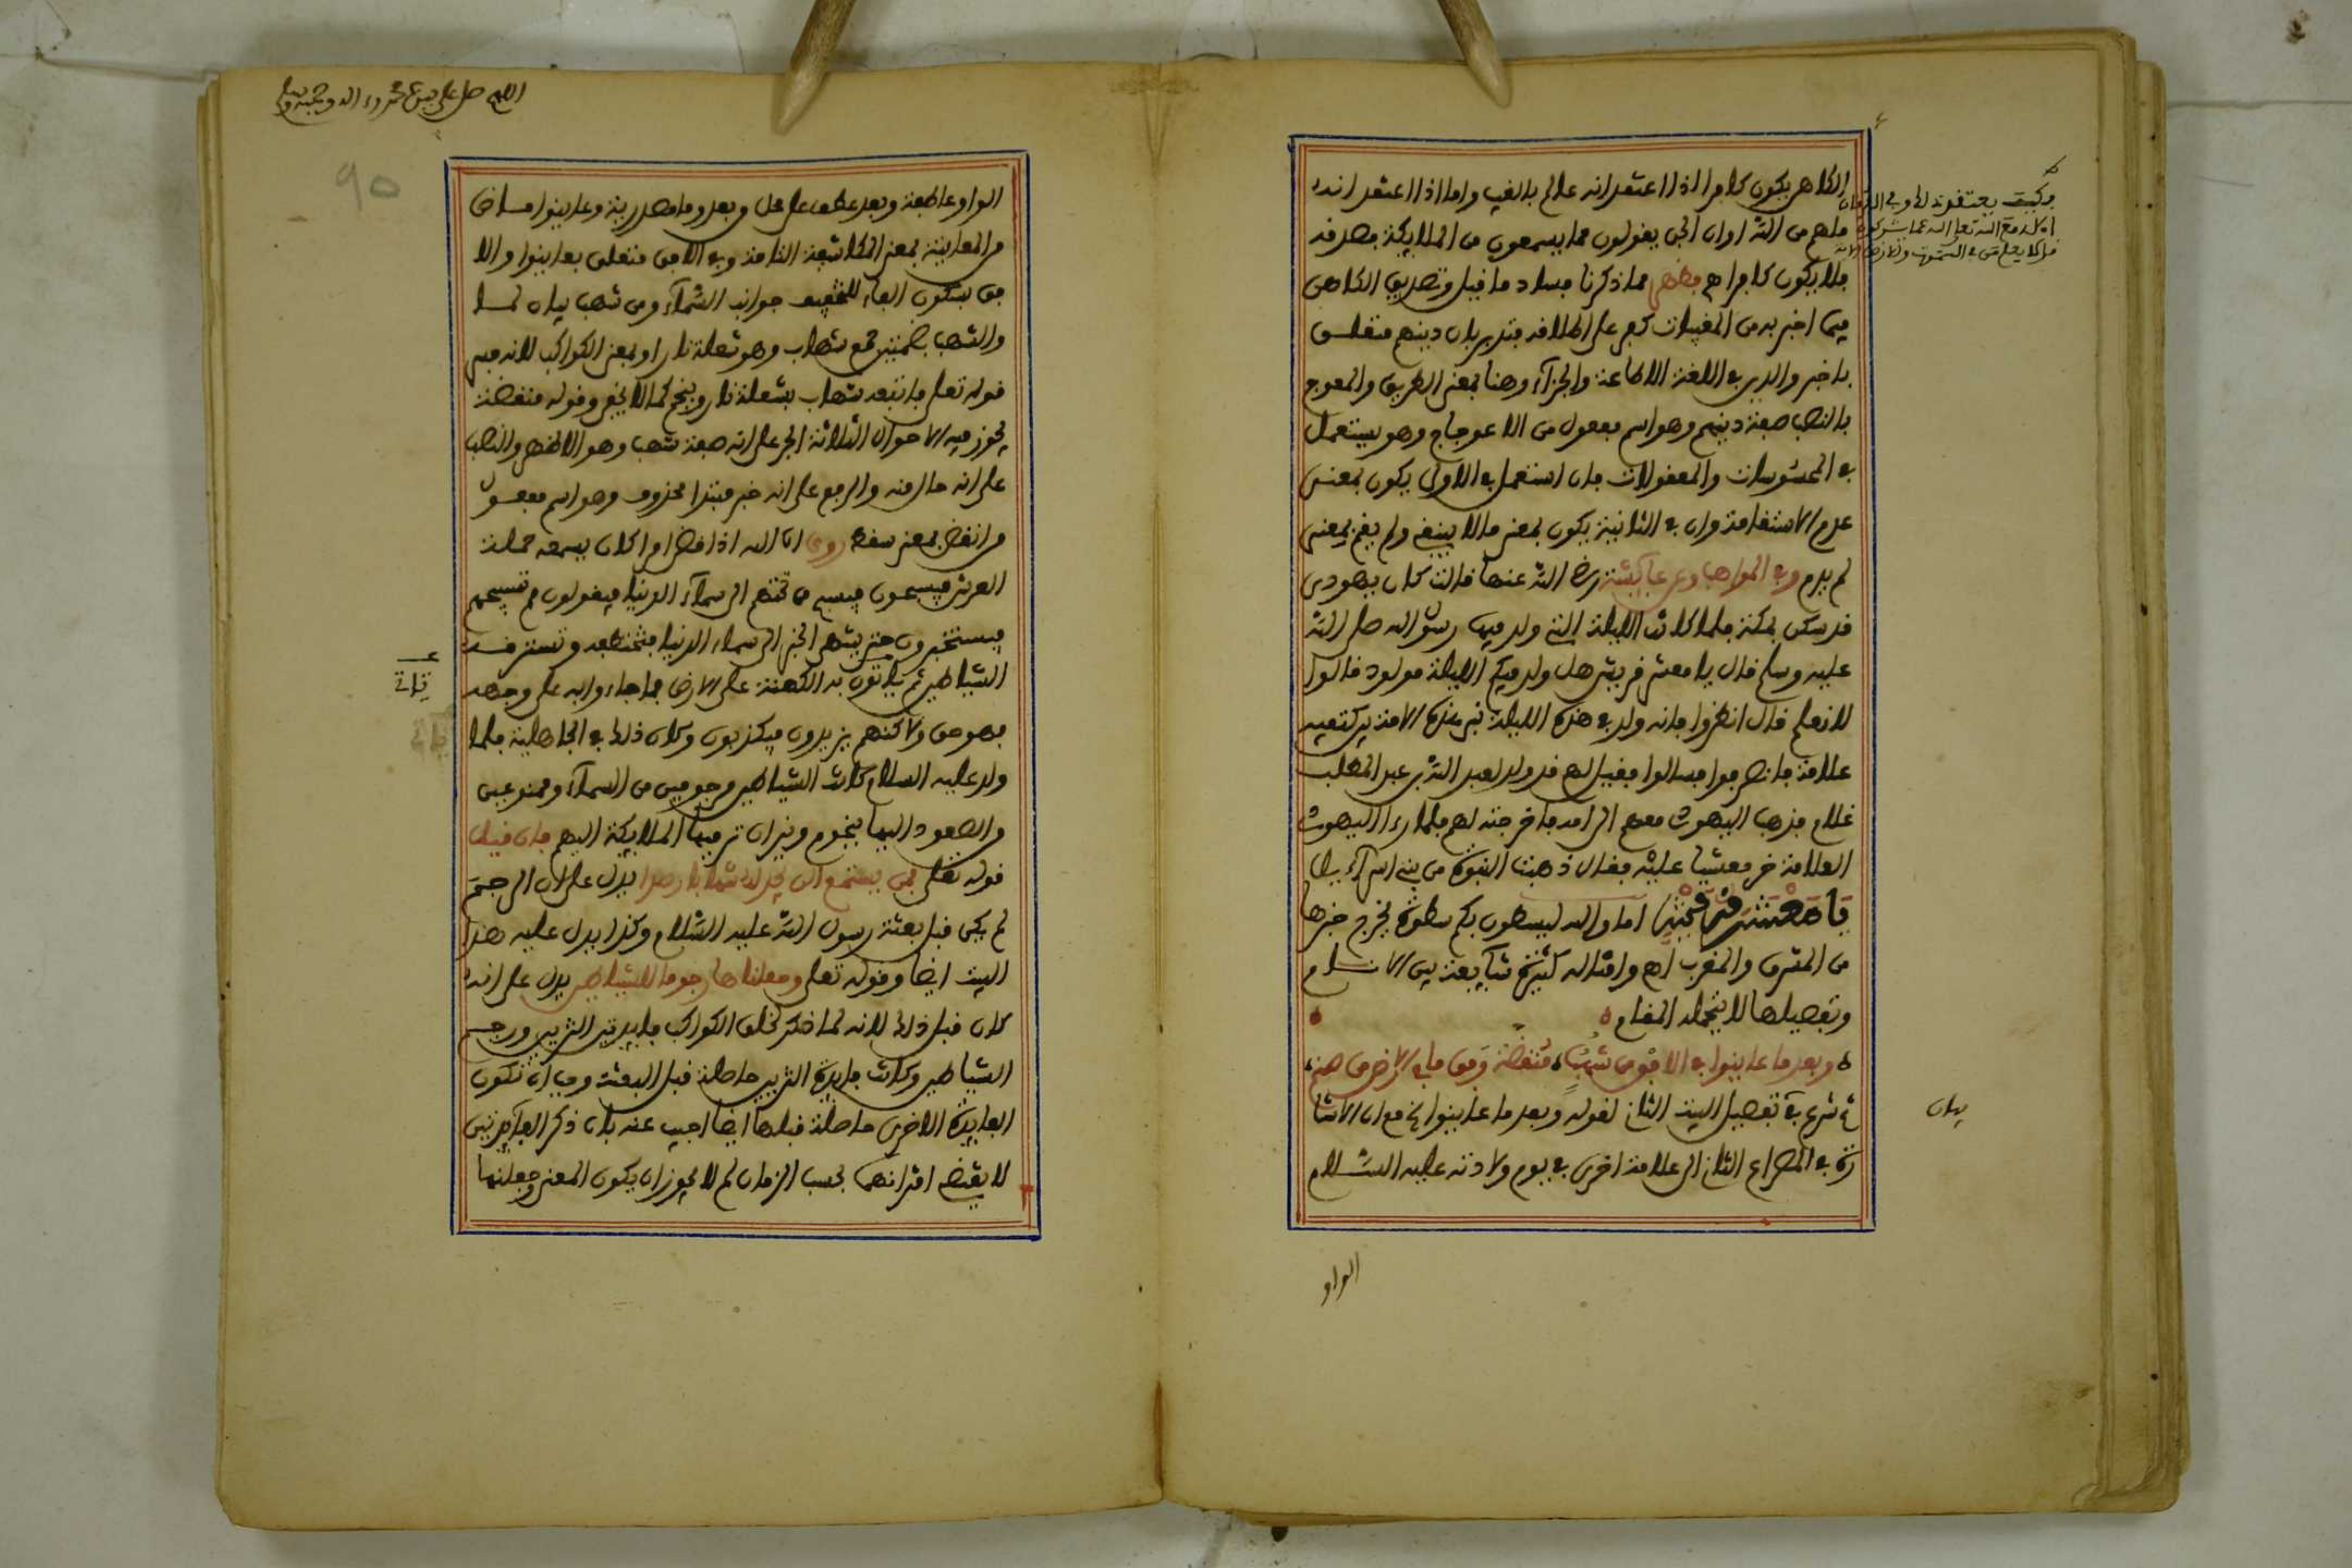 الكاهن يكون كافرا اذا اعتقد انه عالم بالغيب واما اذا اعتقد انه
ملهم من الله او ان الجن يقولون مما يسمعون من الملايكة فصدقه
فلا يكون كافرا اهـ فظهر مما ذكرنا فساد ما قيل وتصديق الكاهن
فيما اخبر به من المغيبات كفر على اطلاقه فتدبر بان دينهم متعلق
باخبر والدين في اللغة الاطاعة والجزآء وهنا بمعنى الطريق والمعوج
بالنصب صفة دينهم وهو اسم مفعول من الاعوجاج وهو يستعمل
في المحسوسات والمعقولات فان استعمل في الاولى يكون بمعنى
عدم الاستقامة وان في الثانية يكون بمعنى ما لا ينبغي ولم يقم بمعنى
لم يدم وفي المواهب وعن عآئشة رضي الله عنها قالت كان يهودي
قد سكن بمكة فلما كانت الليلة التي ولد فيها رسول الله صلى الله
عليه وسلم قال يا معشر قريش هل ولد فيكم الليلة مولود قالوا
لا نعلم قال انظروا فانه ولد في هذه الليلة نبي هذه الامة بين كتفيه
علامة فانصرفوا فسالوا فقيل لهم قد ولد لعبد الله بن عبد المطلب
غلام فذهب اليهودي معهم الى امه فاخرجته لهم فلما راى اليهودي
العلامة خر مغشيا عليه فقال ذهبت النبوة من بني اسرآءيل
يا معشر قريش اما والله ليسطون بكم سطوة يخرج خبرها
من المشرق والمغرب اهـ وامثاله كثيرة شآيعة بين الاسلام
وتفصيلها لا يتحمله المقام
وبعد ما عاينوا في الافق من شهب منقضة وفق ما في الارض من صنم
ثم شرع في تفصيل البيت الثاني لقوله وبعد ما عاينوا الخ مع ان الاشا
رة في المصراع الثاني الى علامة اخرى في يوم ولادته عليه السلام
بيان
الواو
90
الواو عاطفة وبعد عطف على محل وبعد وما مصدرية وعاينوا ماض
من المعاينة بمعنى المكاشفة التامة وفي الافق متعلق بعاينوا والا
فق بسكون الفاء للتخفيف جوانب السمآء ومن شهب بيان لما
والشهب بضمتين جمع شهاب وهو شعلة نار او بمعنى الكواكب لانه فسر
قوله تعلى فاتبعه شهاب بشعلة نار وبنجم كما لا يخفى وقوله منقضة
يجوز فيه الاحوال الثلاثة الجر على انه صفة شهب وهو الاظهر والنصب
على انه حال منه والرفع على انه خبر مبتدا محذوف وهو اسم مفعول
من انقض بمعنى سقط روي ان الله اذا قضى امرا كان يسمعه حملة
العرش فيسبحون فيسبح من تحتهم الى سمآء الدنيا فيقولون مم تسبيحهم
فيستخبرون حتى ينتهي الخبر الى سماء الدنيا فتختطفه وتسترقه
الشياطين ثم ياتون به الكهنة على الارض فما جاءوا به على وجهه
فهو حق ولاكنهم يزيدون فيكذبون وكان ذلك في الجاهلية فلما
ولد عليه السلام كانت الشياطين مرجومين من السمآء وممنوعين
من الصعود اليها بنجوم ونيران ترميها الملايكة اليهم فان قيل
قوله تعلى فمن يستمع الان يجد له شهابا رصدا يدل على ان الرجم
لم يكن قبل بعثة رسول الله عليه السلام وكذا يدل عليه هذا
البيت ايضا وقوله تعلى وجعلناها رجوما للشياطين يدل على انه
كان قبل ذلك لانه لما ذكر لخلق الكواكب فايدتين التزيين ورجم
الشياطين وكانت فايدة التزيين حاصلة قبل البعثة وجب ان تكون
الفايدة الاخرى حاصلة قبلها ايضا اجيب عنه بان ذكر الفآئدتين
لا يقتضي اقترانهما بحسب الزمان لم لا يجوز ان يكون المعنى وجعلنها